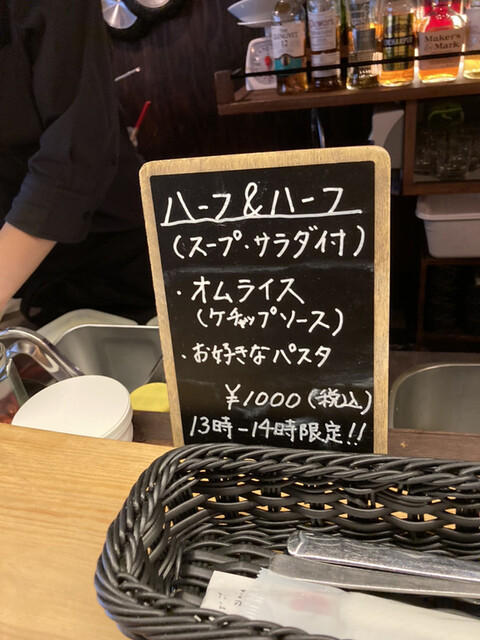 ハーフ&ハーフ
(スープ・サラダ付)
・オムライス
(ケチャップソース)
・お好きなパスタ
¥1000(税込)
13時-14時限定!!
Maker's
Mark